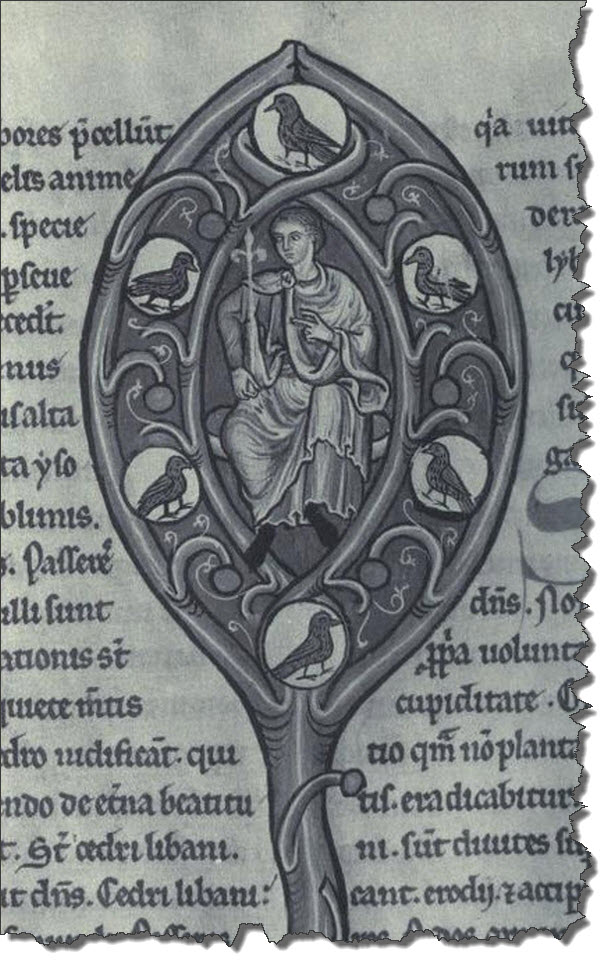 bores p̄cellūt
elis anime
. specie
ꝑseue
cedit.
nus
alta
ta ẏso
blimis.
s. Passereˢ
illi sunt
ationis st̄
quiete m̄tis
edro nidificāt. qui
endo de et̄na beatitu
t. St̄ cedri libani.
it dn̄s. Cedri libani:
qⁱa uit
rum s
der
lyb
cu
su
ga
S
dn̄s. No
ꝓp̄a uolunt
cupiditate. C
tio qm̄ nō planta
tis. eradicabitur
ni. sūt diuites s
cant. erodij. ⁊ accip